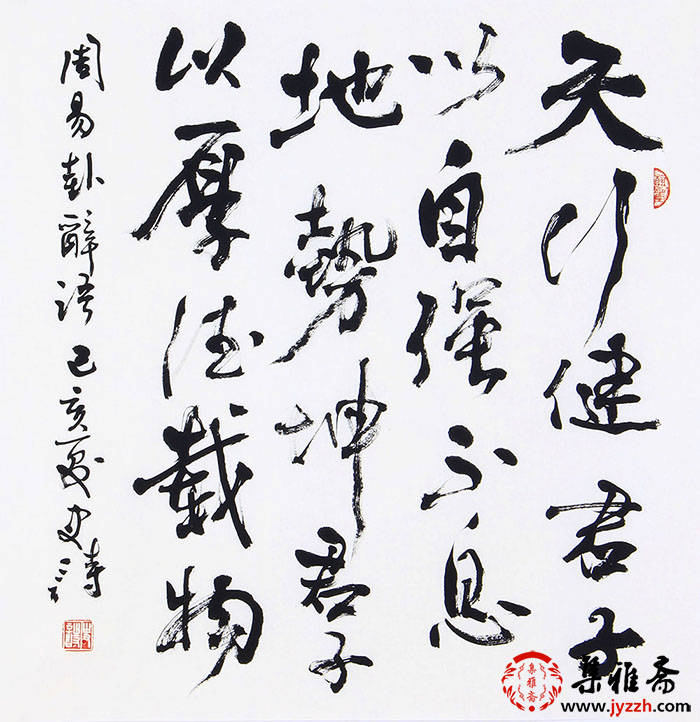 天行健君子
以自強不息
地勢坤君子
以厚德載物
周易卦辭語 己亥夏史
集雅斋
www.jyzzh.com